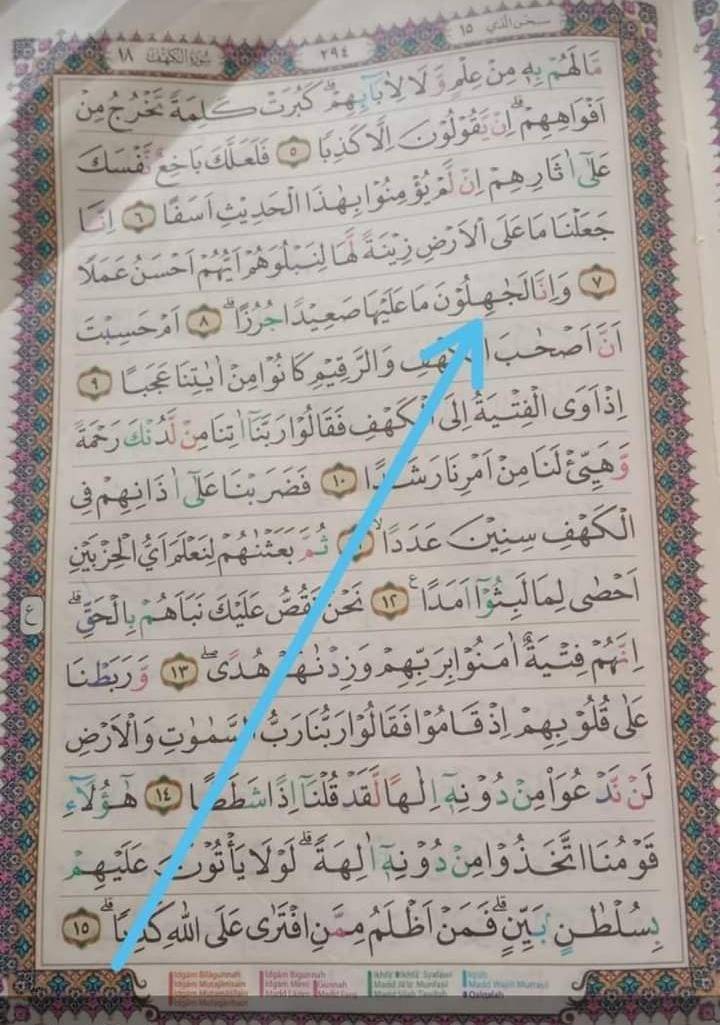 سبحن الذي ١٥
٢٩٤
سورة الكهف ١٨
مَّا لَهُمْ بِهٖ مِنْ عِلْمٍ وَّلَا لِاٰبَاۤىِٕهِمْۗ كَبُرَتْ كَلِمَةً تَخْرُجُ مِنْ
اَفْوَاهِهِمْۗ اِنْ يَّقُوْلُوْنَ اِلَّا كَذِبًا ٥ فَلَعَلَّكَ بَاخِعٌ نَّفْسَكَ
عَلٰٓى اٰثَارِهِمْ اِنْ لَّمْ يُؤْمِنُوْا بِهٰذَا الْحَدِيْثِ اَسَفًا ٦ اِنَّا
جَعَلْنَا مَا عَلَى الْاَرْضِ زِيْنَةً لَّهَا لِنَبْلُوَهُمْ اَيُّهُمْ اَحْسَنُ عَمَلًا
٧ وَاِنَّا لَجٰهِلُوْنَ مَا عَلَيْهَا صَعِيْدًا جُرُزًاۗ ٨ اَمْ حَسِبْتَ
اَنَّ اَصْحٰبَ الْكَهْفِ وَالرَّقِيْمِ كَانُوْا مِنْ اٰيٰتِنَا عَجَبًا ٩
اِذْ اَوَى الْفِتْيَةُ اِلَى الْكَهْفِ فَقَالُوْا رَبَّنَآ اٰتِنَا مِنْ لَّدُنْكَ رَحْمَةً
وَّهَيِّئْ لَنَا مِنْ اَمْرِنَا رَشَدًا ١٠ فَضَرَبْنَا عَلٰٓى اٰذَانِهِمْ فِى
الْكَهْفِ سِنِيْنَ عَدَدًاۙ ثُمَّ بَعَثْنٰهُمْ لِنَعْلَمَ اَيُّ الْحِزْبَيْنِ
اَحْصٰى لِمَا لَبِثُوْٓا اَمَدًا ࣖ ١٢ نَحْنُ نَقُصُّ عَلَيْكَ نَبَاَهُمْ بِالْحَقِّۗ
ع
اِنَّهُمْ فِتْيَةٌ اٰمَنُوْا بِرَبِّهِمْ وَزِدْنٰهُمْ هُدًىۖ ١٣ وَّرَبَطْنَا
عَلٰى قُلُوْبِهِمْ اِذْ قَامُوْا فَقَالُوْا رَبُّنَا رَبُّ السَّمٰوٰتِ وَالْاَرْضِ
لَنْ نَّدْعُوَا۟ مِنْ دُوْنِهٖٓ اِلٰهًا لَّقَدْ قُلْنَآ اِذًا شَطَطًا ١٤ هٰٓؤُلَاۤءِ
قَوْمُنَا اتَّخَذُوْا مِنْ دُوْنِهٖٓ اٰلِهَةًۗ لَوْلَا يَأْتُوْنَ عَلَيْهِمْ
بِسُلْطٰنٍۢ بَيِّنٍۗ فَمَنْ اَظْلَمُ مِمَّنِ افْتَرٰى عَلَى اللّٰهِ كَذِبًاۗ ١٥
Idgam Bilagunnah
Idgam Bigunnah
Idgam Mutajanisain
Idgam Mimi
Gunnah
Mad Jaiz Munfasil
Mad Wajib Muttasil
Qalqalah